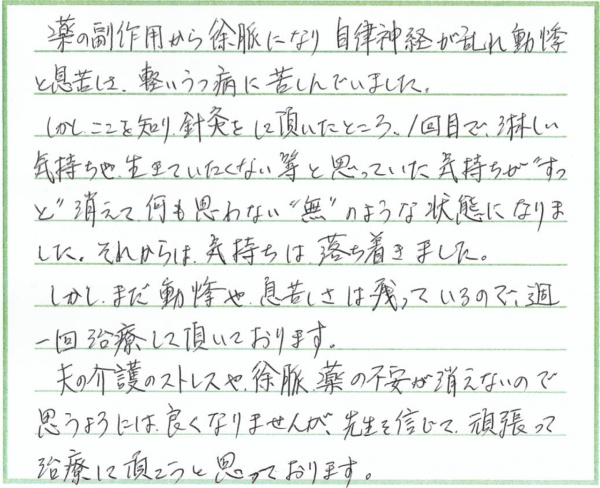 薬の副作用から徐脈になり自律神経が乱れ動悸
と息苦しさ、軽いうつ病に苦しんでいました。
しかし、ここを知り、針灸をして頂いたところ、1回目で、淋しい
気持ちや、生きていたくない等と思っていた気持ちが“すっ
と”消えて、何も思わない“無”のような状態になりま
した。それからは、気持ちは落ち着きました。
しかし、まだ動悸や、息苦しさは残っているので、週
一回治療して頂いております。
夫の介護のストレスや、徐脈、薬の不安が消えないので
思うようには、良くなりませんが、先生を信じて、頑張って
治療して頂こうと思っております。